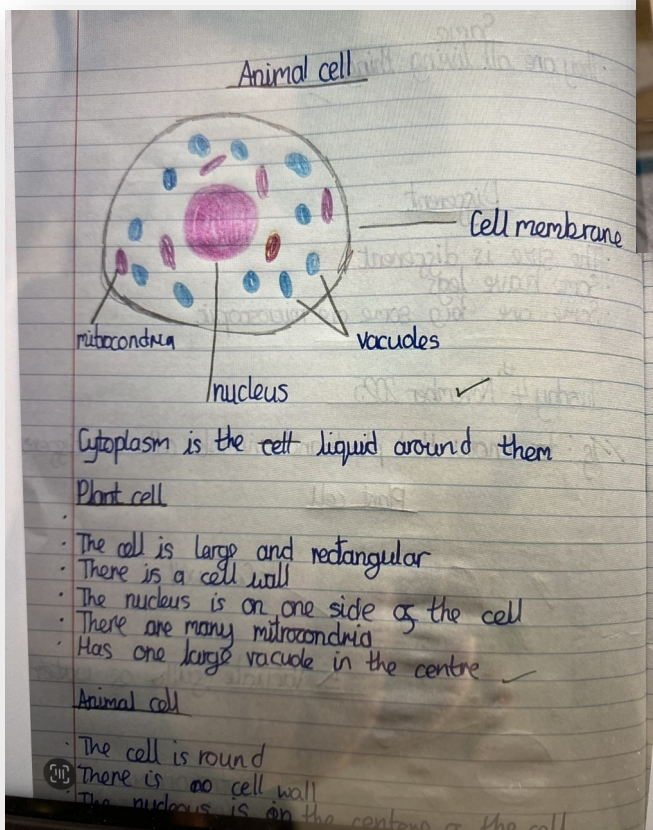 Animal cell
Cell membrane
mitocondria
vacuoles
nucleus
Cytoplasm is the cell liquid around them
Plant cell
· The cell is large and rectangular
· There is a cell wall
· The nucleus is on one side of the cell
· There are many mitrocondria
· Has one large vacuole in the centre
Animal cell
· The cell is round
· There is no cell wall
· The nucleous is in the centero of the cell